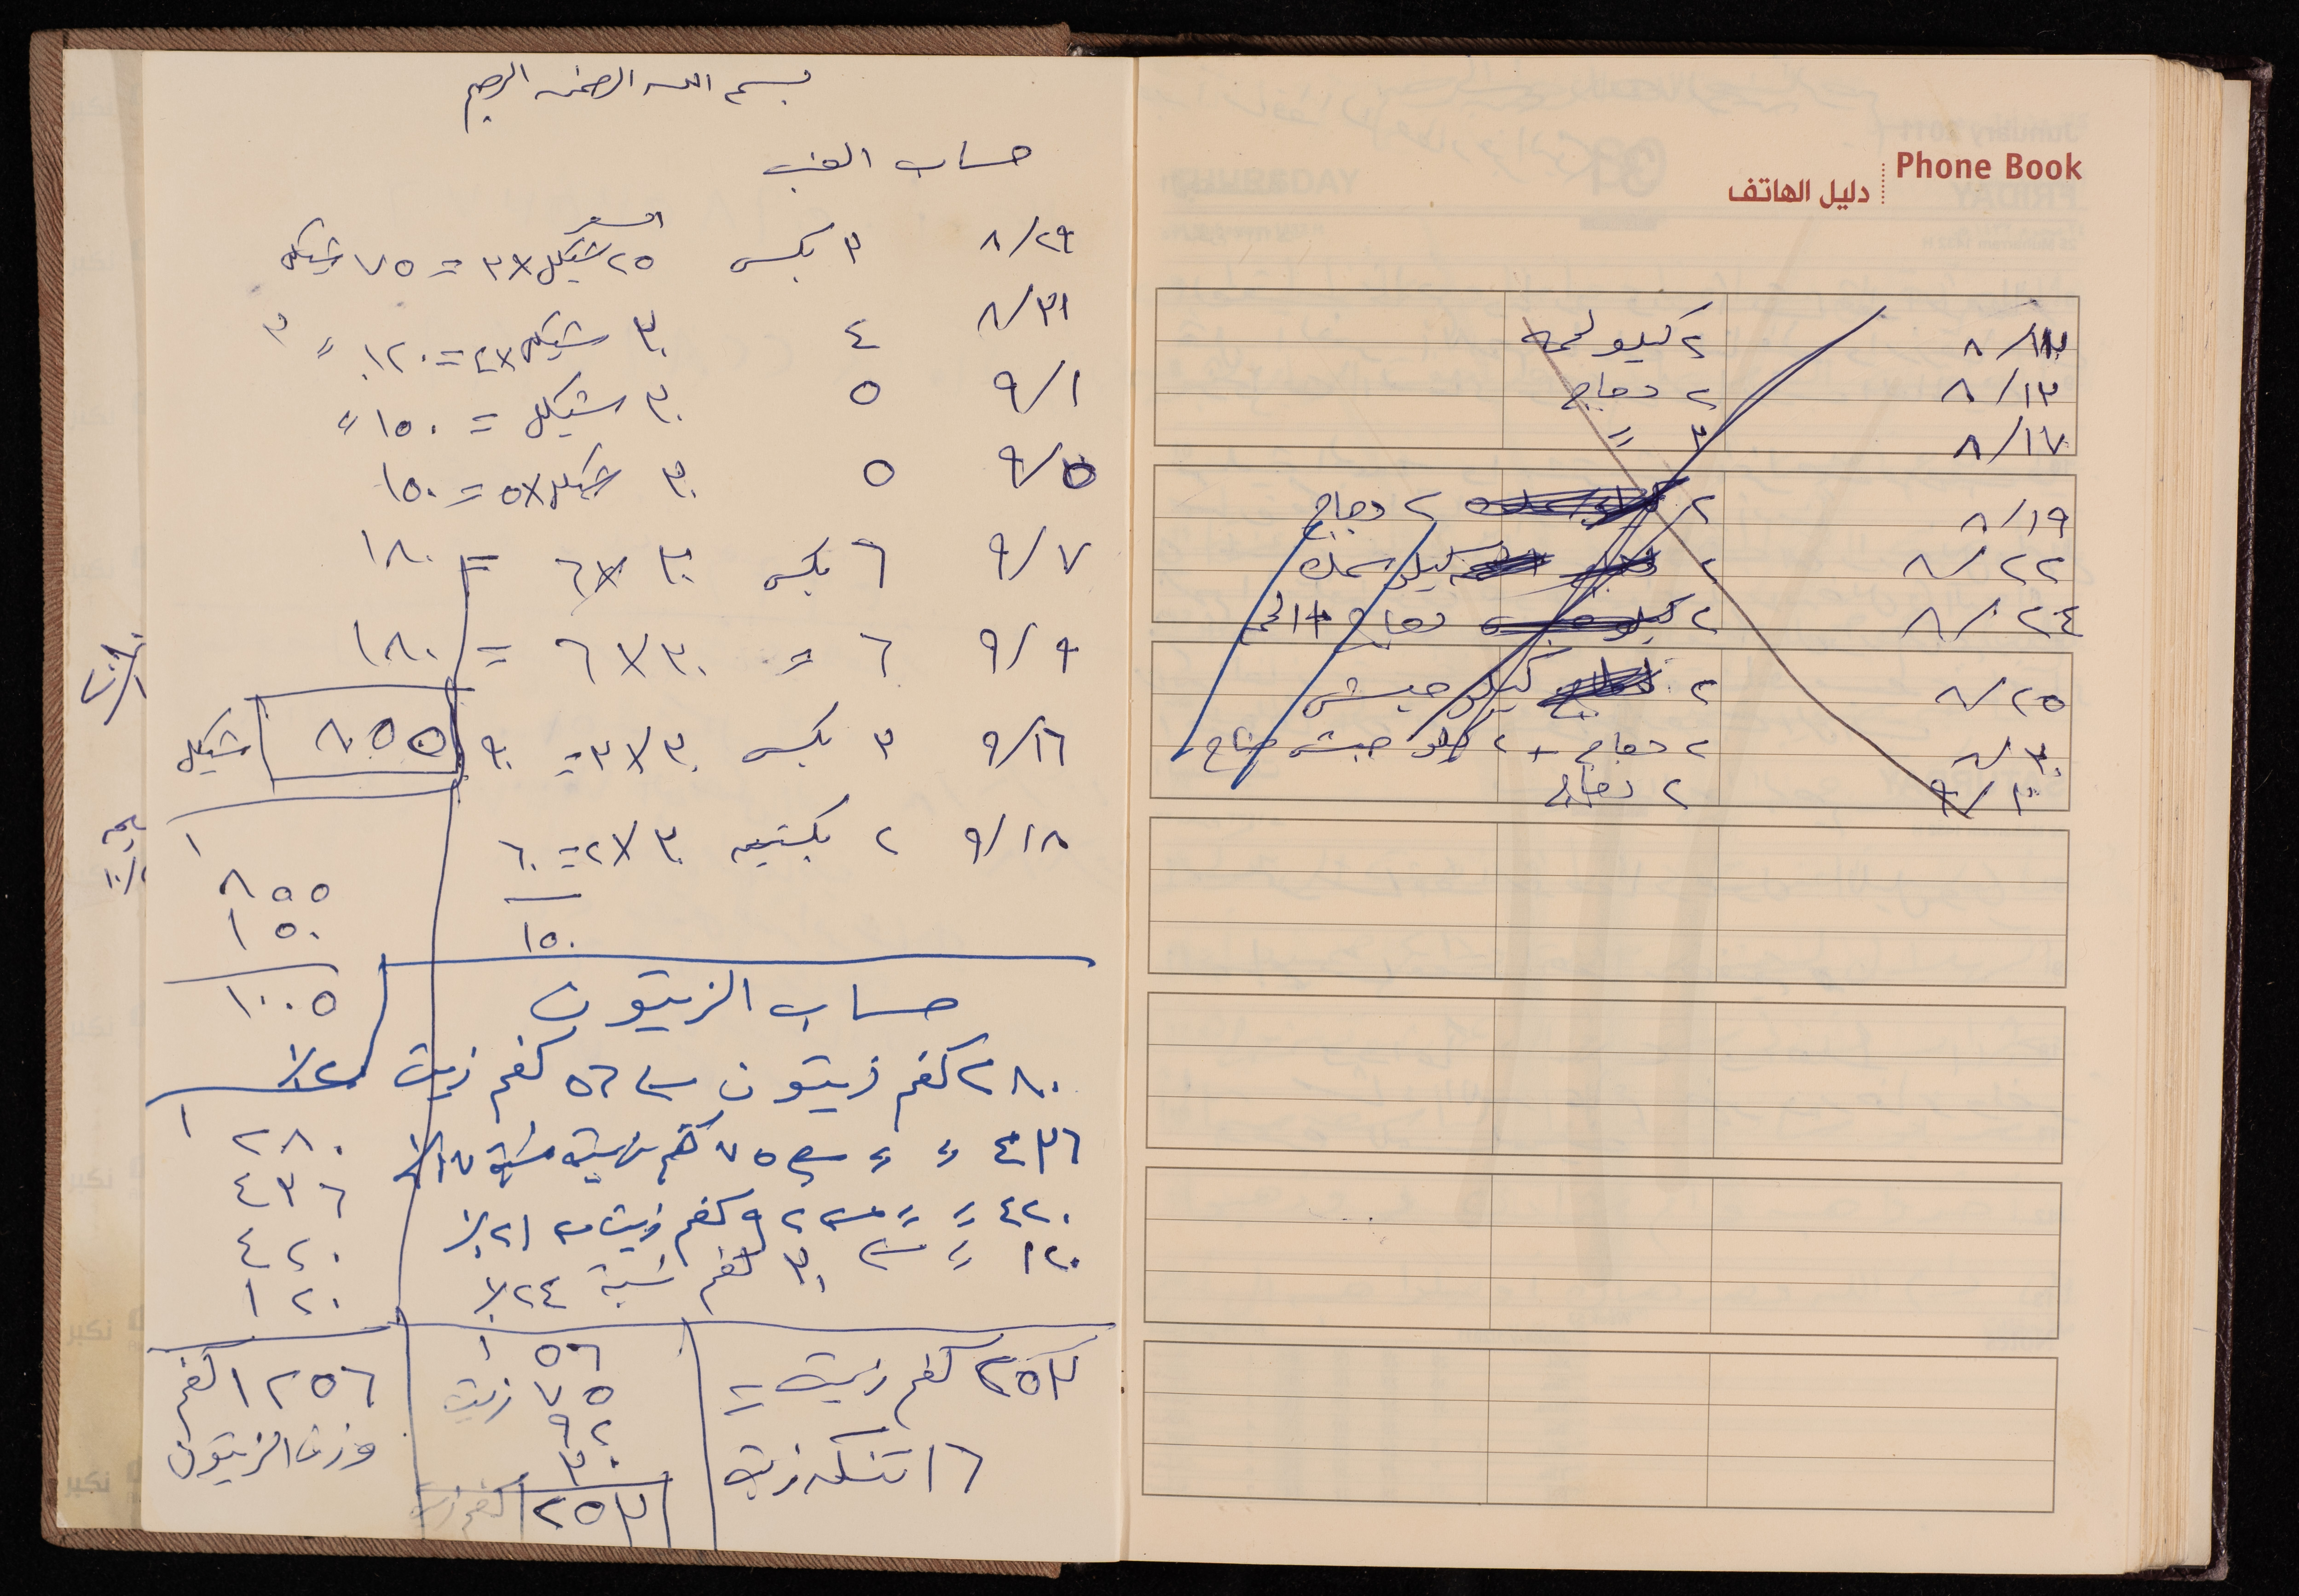 بسم الله الرحمن الرحيم
حساب العنب
السعر
٨/٢٩ ٣ بكس ٢٥ شيكل x ٣ = ٧٥ شيكل
٨/٣١ ٤ ٣٠ شيكل x ٤ = ١٢٠ "
٩/١ ٥ ٣٠ شيكل = ١٥٠ "
٩/٥ ٥ ٣٠ شيكل x ٥ = ١٥٠
٩/٧ ٦ بكس ٣٠ x ٦ = ١٨٠
٩/٩ ٦ = ٣٠ x ٦ = ١٨٠
٩/١٦ ٣ بكس ٣٠ x ٣ = ٩٠
٨٥٥ شيكل
٩/١٨ ٢ بكستين ٣٠ x ٢ = ٦٠
١٥٠
٨٥٥
١٥٠
١٠٠٥
حساب الزيتون
٢٨٠ كغم زيتون س ٥٦ كغم زيت ٢٠٪
٤٣٦ " " س ٧٥ كغم نسبة ١٧٪
٤٢٠ " " س ٩٢ كغم زيت ٢١٪
١٢٠ " س ٣٠ كغم نسبة ٢٤٪
٢٨٠
٤٣٦
٤٢٠
١٢٠
١٢٥٦ كغم
وزن الزيتون
٥٦
٧٥ زيت
٩٢
٣٠
٢٥٣ كغم زيت
٢٥٣ كغم زيت =
١٦ تنكه زيت
Phone Book
دليل الهاتف
٢ كيلو لحمه
٨/١٣ ٢ دجاج
٨/١٧ ٣ =
٨/١٩ ٢ ٢ دجاج
٨/٢٢ ٢ كيلو سمك
٨/٢٤ ٢ كيلو دجاج +
٨/٢٥ ٢ كيلو حبش
٨/٣٠ ٢ دجاج + ٢ كيلو حبش جناح
٩/١٠ ٢ دجاج